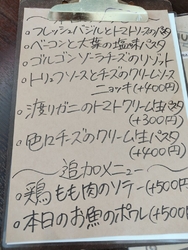 ○フレッシュバジルとトマトソースのパスタ
○ベーコンと大葉の塩味パスタ
○ゴルゴンゾーラチーズのリゾット
○トリュフソースとチーズのクリームソース
ニョッキ(+400円)
○渡りガニのトマトクリーム生パスタ
(+300円)
○色口チーズのクリーム生パスタ
(+400円)
〜追加メニュー〜
○鶏もも肉のソテー(+500円)
○本日のお魚のポワレ(+500円)